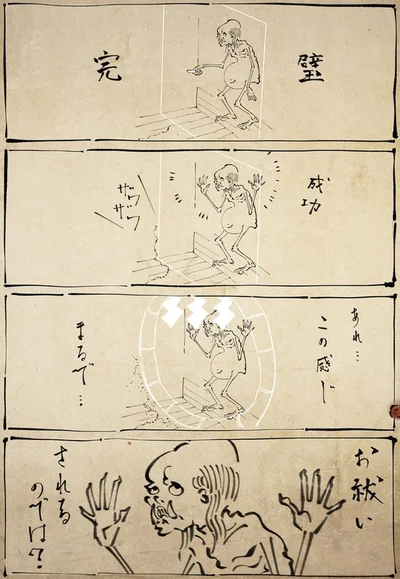 完
璧
成功
ザワ
ザワ
あれ…
この感じ
まるで…
お祓い
される
のでは？